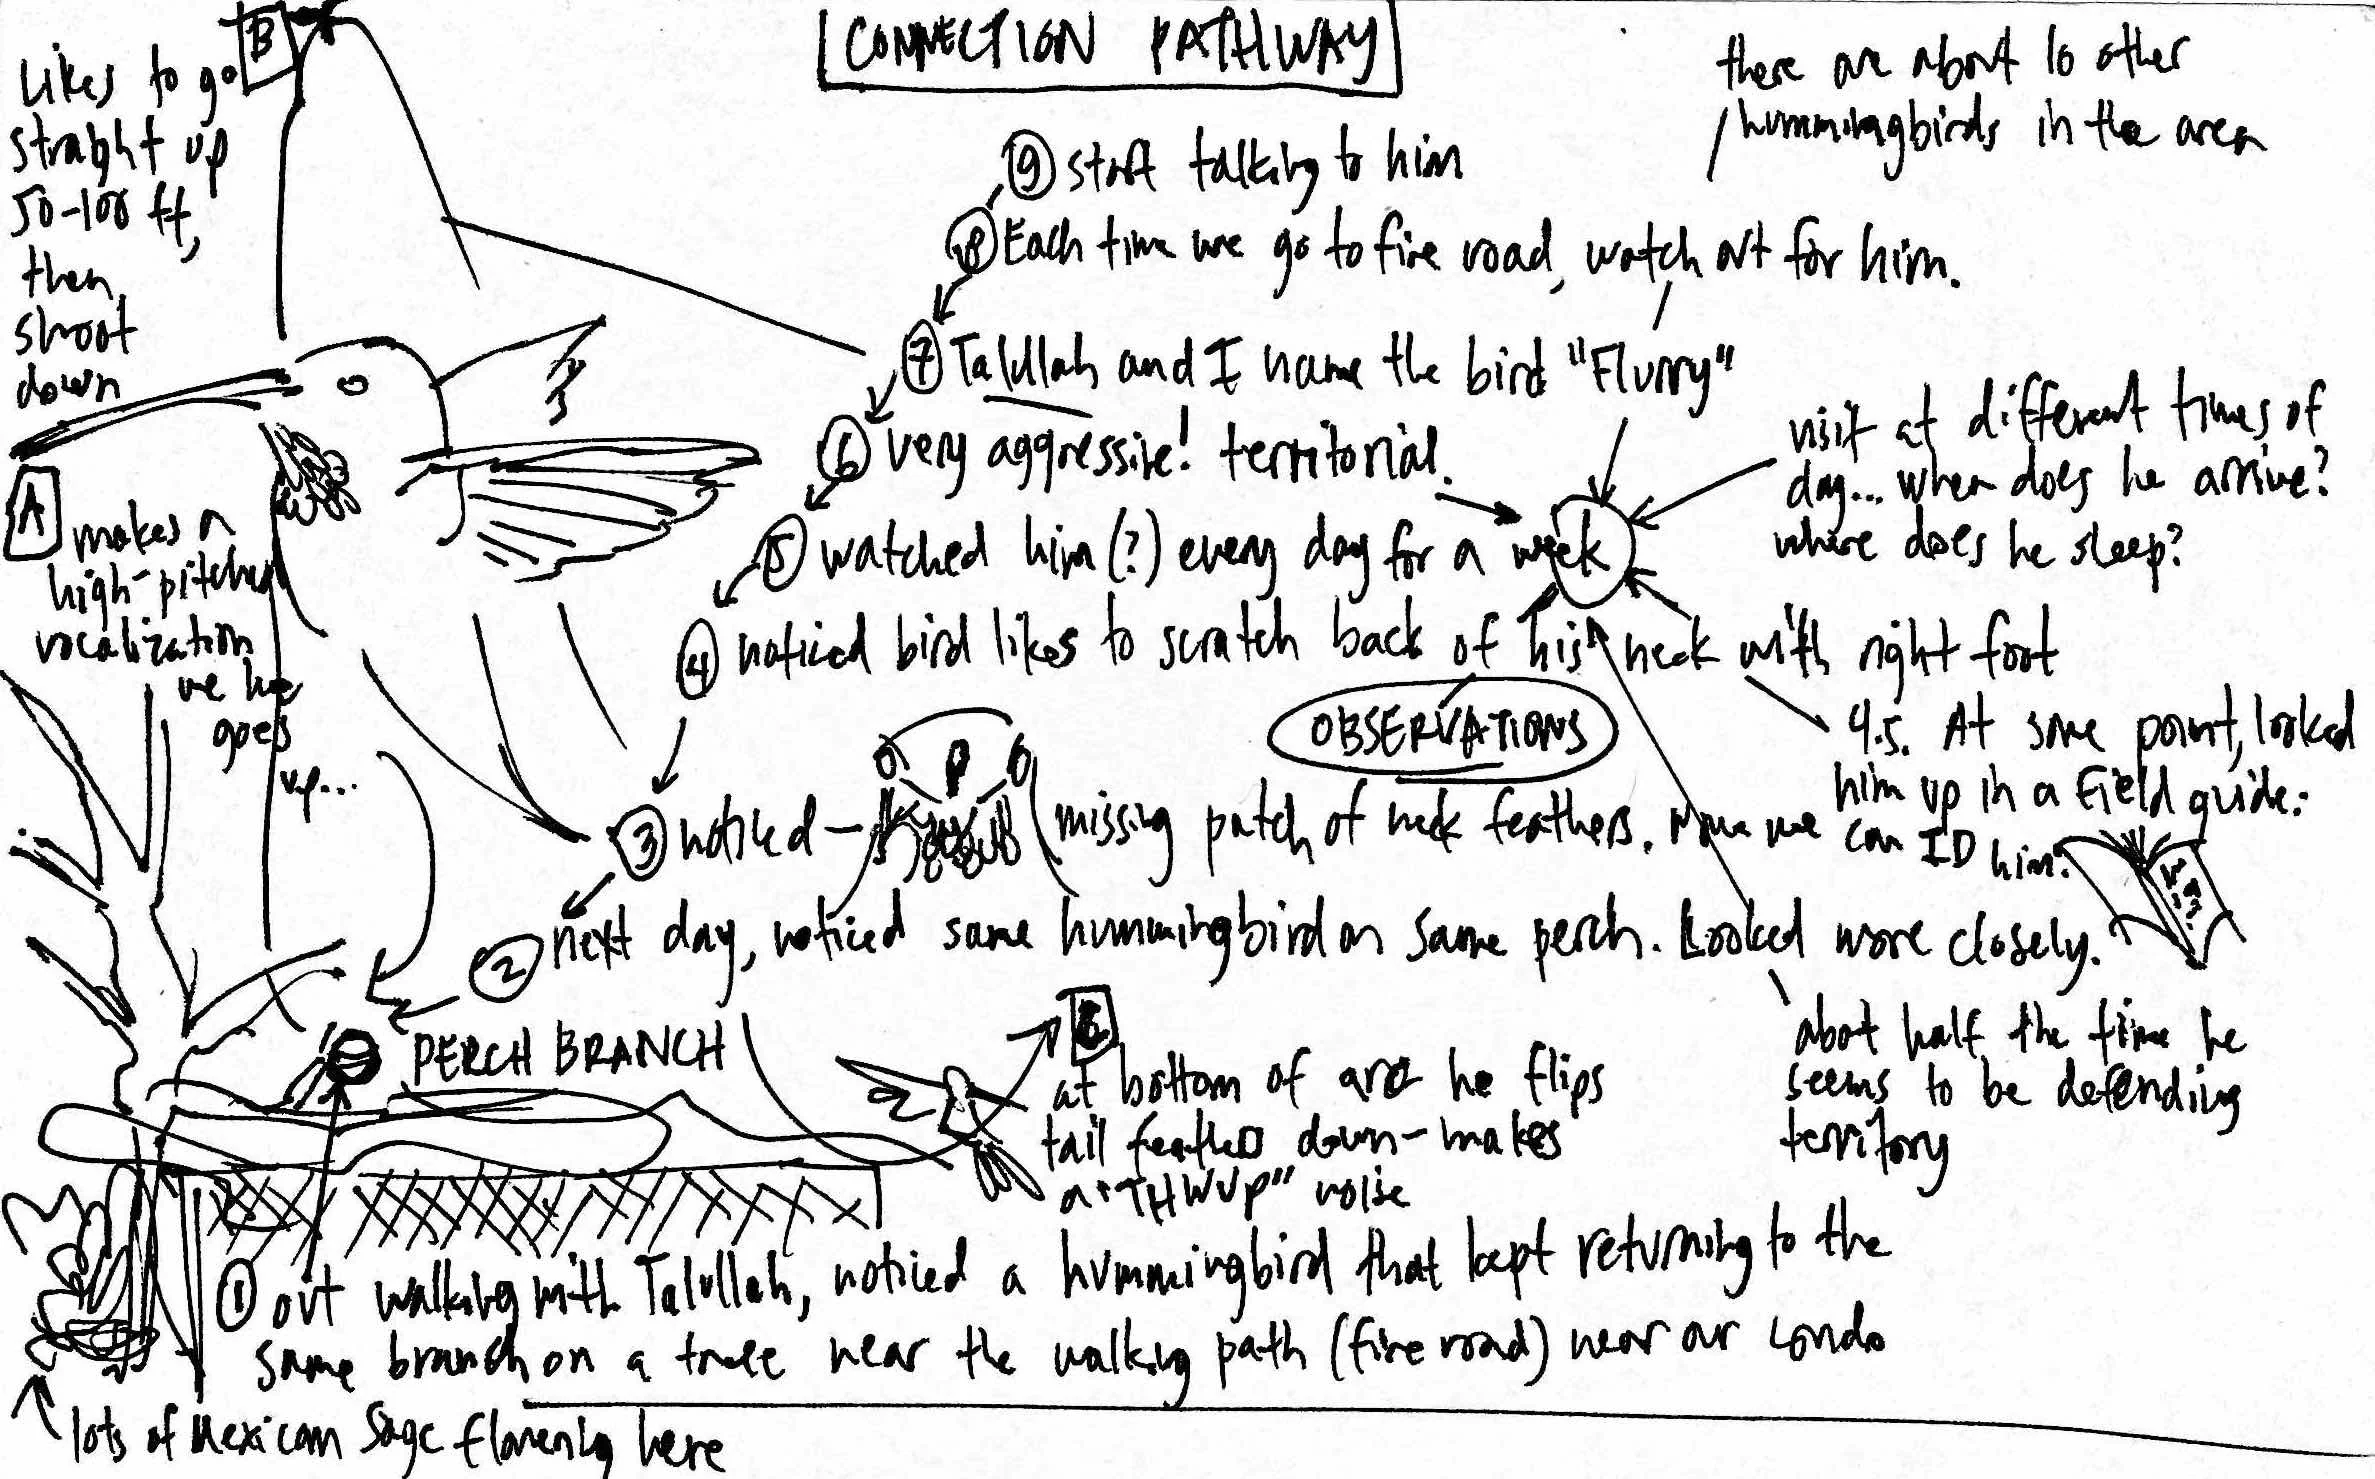 CONNECTION PATHWAY
B
Likes to go
straight up
50-100 ft,
then
shoot
down
there are about 10 other
hummingbirds in the area
9 start talking to him
8 Each time we go to fire road, watch out for him.
7 Talullah and I name the bird "Flurry"
6 very aggressive! territorial.
5 watched him (?) every day for a week
4 noticed bird likes to scratch back of his neck with right foot
visit at different times of
day... when does he arrive?
where does he sleep?
A
makes a
high-pitched
vocalization
he
goes
up...
OBSERVATIONS
4.5. At some point, looked
him up in a Field guide.
3 noticed - missing patch of neck feathers. we can ID him.
2 next day, noticed same hummingbird on same perch. Looked more closely.
PERCH BRANCH
C
at bottom of arc he flips
tail feathers down - makes
a "THWUP" noise
about half the time he
seems to be defending
territory
1 out walking with Talullah, noticed a hummingbird that kept returning to the
same branch on a tree near the walking path (fire road) near our condo
lots of Mexican Sage flowering here